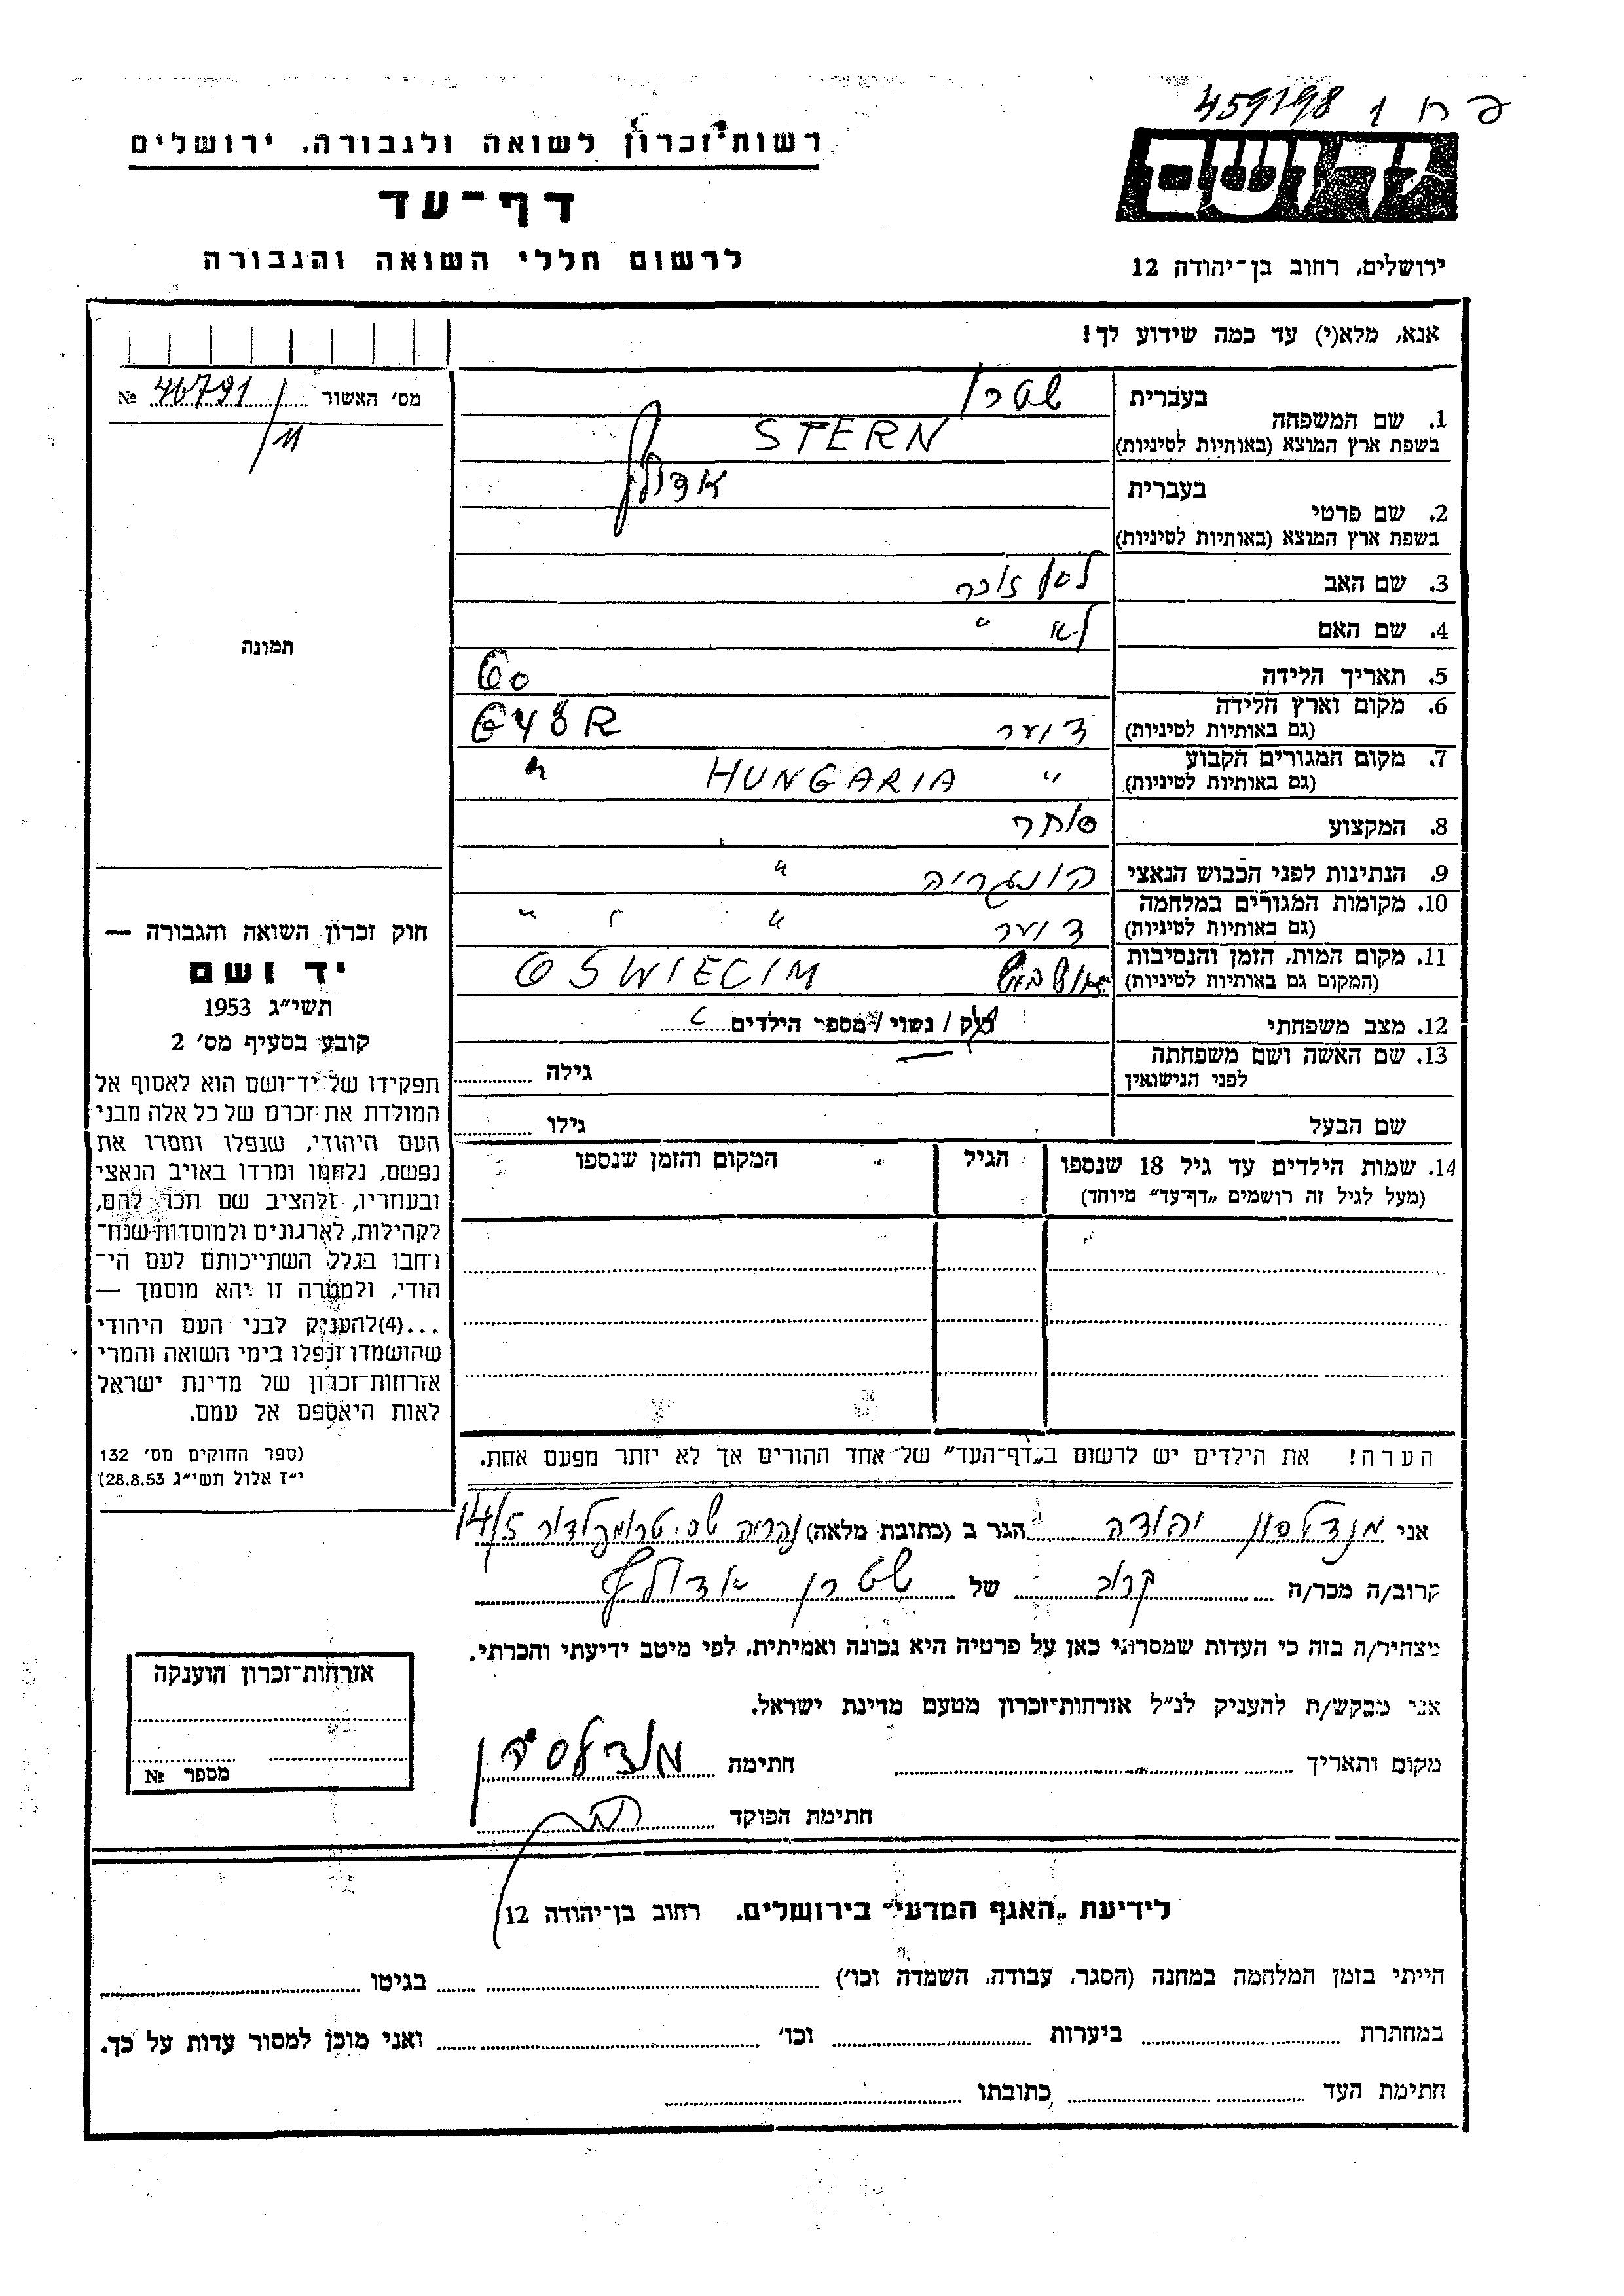 פ ח 1 459198
יד ושם
רשות־זכרון לשואה ולגבורה, ירושלים
דף־עד
לרשום חללי השואה והגבורה
ירושלים, רחוב בן־יהודה 12
אנא, מלא(י) עד כמה שידוע לך!
מס׳ האשור 46791 №
11
בעברית שטרן
1. שם המשפחה
בשפת ארץ המוצא (באותיות לטיניות) STERN
בעברית אדולף
2. שם פרטי
בשפת ארץ המוצא (באותיות לטיניות)
3. שם האב לא זוכר
4. שם האם לא "
5. תאריך הלידה 60
6. מקום וארץ הלידה
(גם באותיות לטיניות) דיער GYÖR
7. מקום המגורים הקבוע
(גם באותיות לטיניות) " HUNGARIA "
8. המקצוע סוחר
9. הנתינות לפני הכבוש הנאצי הונגריה "
10. מקומות המגורים במלחמה
(גם באותיות לטיניות) דיער " " "
11. מקום המות, הזמן והנסיבות
(המקום גם באותיות לטיניות) אושביץ OSWIECIM
12. מצב משפחתי רוק / נשוי / מספר הילדים
13. שם האשה ושם משפחתה
לפני הנישואין גילה
שם הבעל גילו
14. שמות הילדים עד גיל 18 שנספו
(מעל לגיל זה רושמים „דף־עד” מיוחד)
הגיל
המקום והזמן שנספו
הערה! את הילדים יש לרשום ב„דף־העד” של אחד ההורים אך לא יותר מפעם אחת.
תמונה
חוק זכרון השואה והגבורה —
יד ושם
תשי״ג 1953
קובע בסעיף מס׳ 2
תפקידו של יד־ושם הוא לאסוף אל
המולדת את זכרם של כל אלה מבני
העם היהודי, שנפלו ומסרו את
נפשם, נלחמו ומרדו באויב הנאצי
ובעוזריו, ולהציב שם וזכר להם,
לקהילות, לארגונים ולמוסדות שנח־
רחבו בגלל השתייכותם לעם הי־
הודי, ולמטרה זו יהא מוסמך —
...(4)להעניק לבני העם היהודי
שהושמדו ונפלו בימי השואה והמרי
אזרחות־זכרון של מדינת ישראל
לאות היאספם אל עמם.
(ספר החוקים מס׳ 132
י״ז אלול תשי״ג 28.8.53)
אני מנדלסון יהודה הגר ב (כתובת מלאה) נהריה שכ. טרומפלדור 14/5
קרוב/ה מכר/ה קרוב של שטרן אדולף
מצהיר/ה בזה כי העדות שמסרתי כאן על פרטיה היא נכונה ואמיתית, לפי מיטב ידיעתי והכרתי.
אני מבקש/ת להעניק לנ״ל אזרחות־זכרון מטעם מדינת ישראל.
מקום ותאריך חתימה מנדלסון
חתימת הפוקד
אזרחות־זכרון הוענקה
מספר №
לידיעת „האגף המדעי” בירושלים, רחוב בן־יהודה 12
הייתי בזמן המלחמה במחנה (הסגר, עבודה, השמדה וכו׳) בגיטו
במחתרת ביערות וכו׳ ואני מוכן למסור עדות על כך.
חתימת העד כתובתו